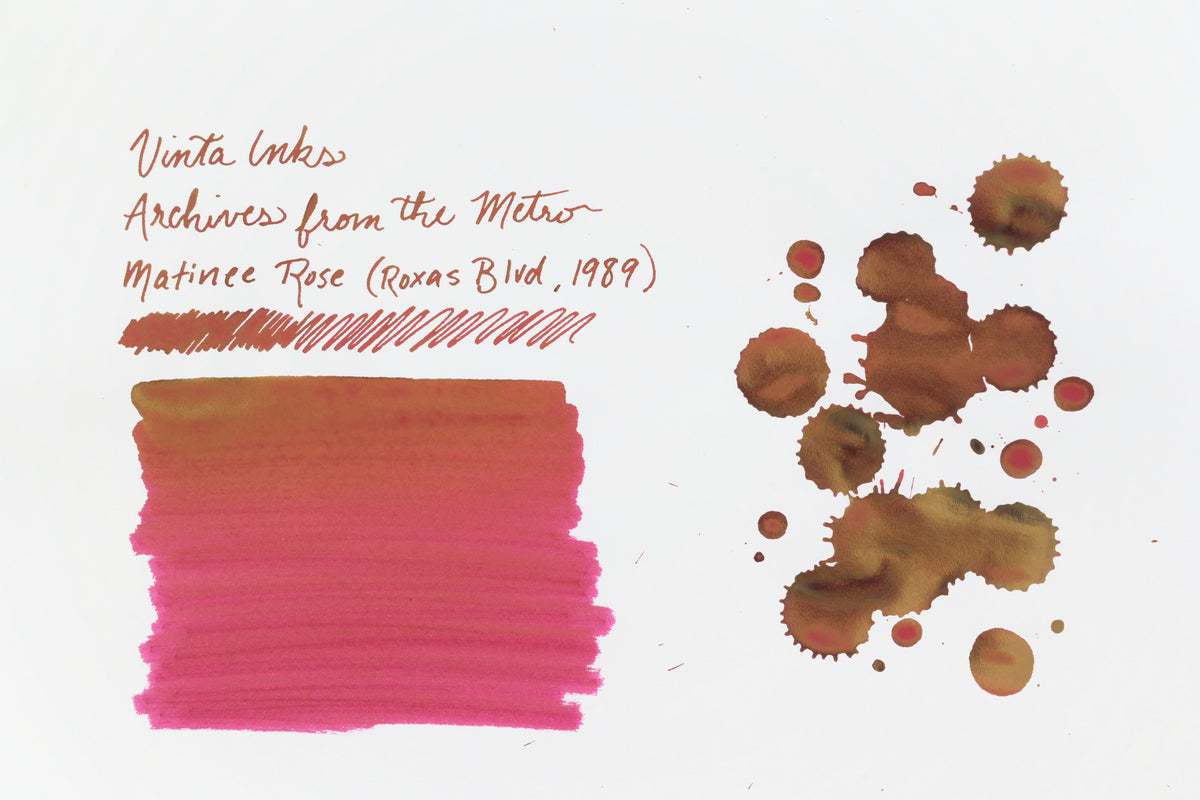 Vinta Inks
Archives from the Metro
Matinee Rose (Roxas Blvd, 1989)